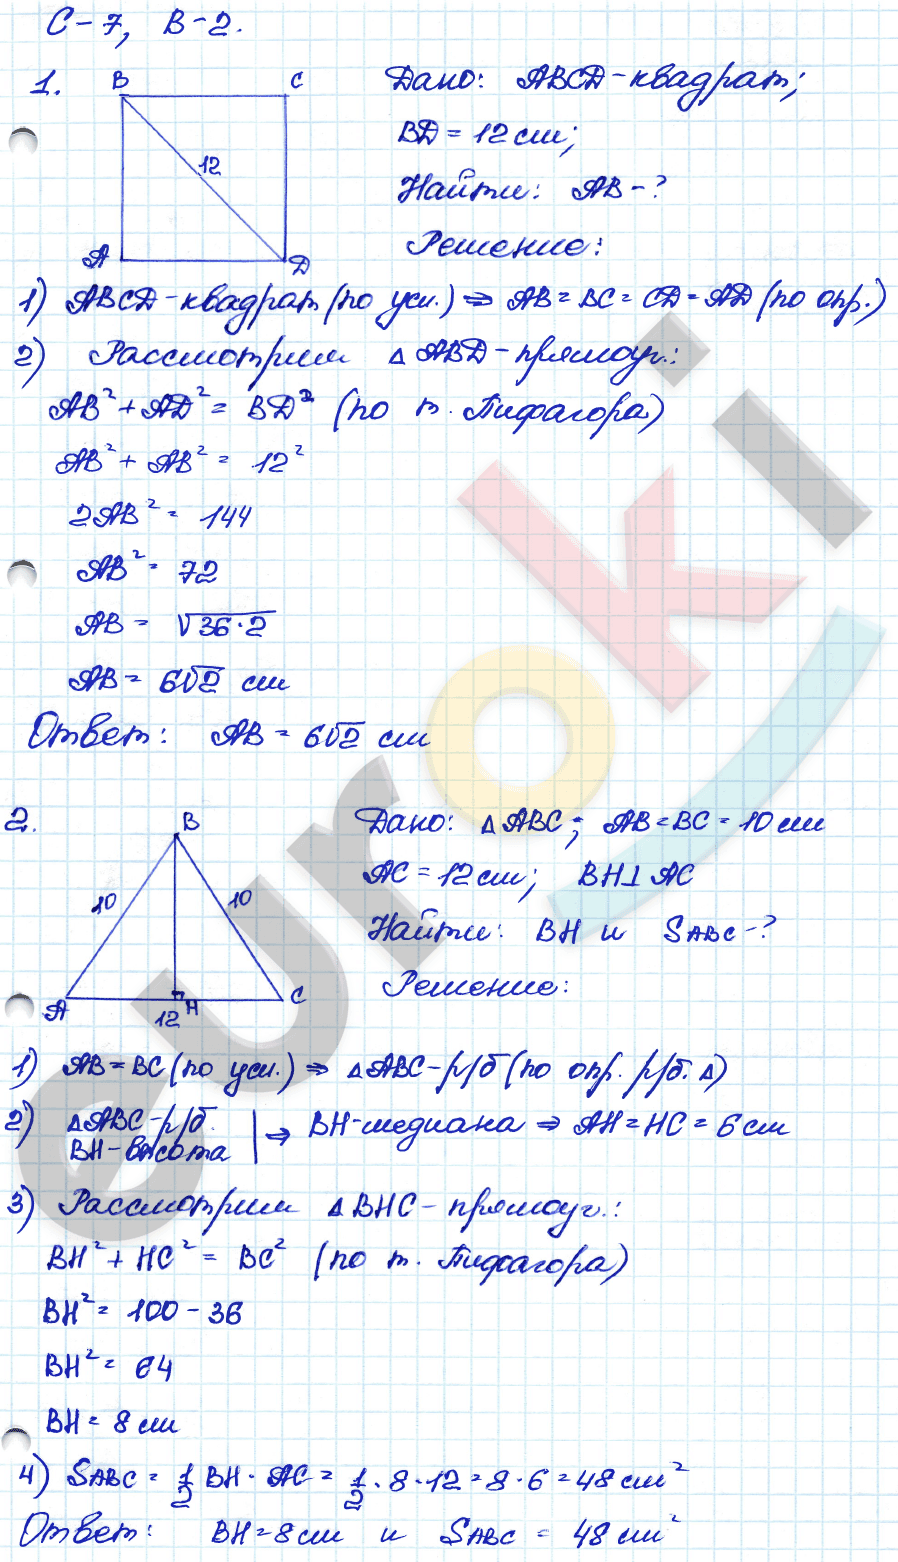 С-7, В-2.
1.
B C
12
A D
Дано: ABCD-квадрат;
BD = 12 см;
Найти: AB-?
Решение:
1) ABCD-квадрат (по усл.) ⇒ AB = BC = CD = AD (по опр.)
2) Рассмотрим △ABD-прямоуг.:
AB² + AD² = BD² (по т. Пифагора)
AB² + AB² = 12²
2AB² = 144
AB² = 72
AB = √36·2
AB = 6√2 см
Ответ: AB = 6√2 см
2.
B
10 10
A H C
12
Дано: △ABC; AB = BC = 10 см
AC = 12 см; BH⊥AC
Найти: BH и SABC-?
Решение:
1) AB = BC (по усл.) ⇒ △ABC-р/б (по опр. р/б. △)
2) △ABC-р/б.
BH-высота | ⇒ BH-медиана ⇒ AH = HC = 6 см
3) Рассмотрим △BHC-прямоуг.:
BH² + HC² = BC² (по т. Пифагора)
BH² = 100 - 36
BH² = 64
BH = 8 см
4) SABC = 1/2 BH · AC = 1/2 · 8 · 12 = 8 · 6 = 48 см²
Ответ: BH = 8 см и SABC = 48 см²
euroki